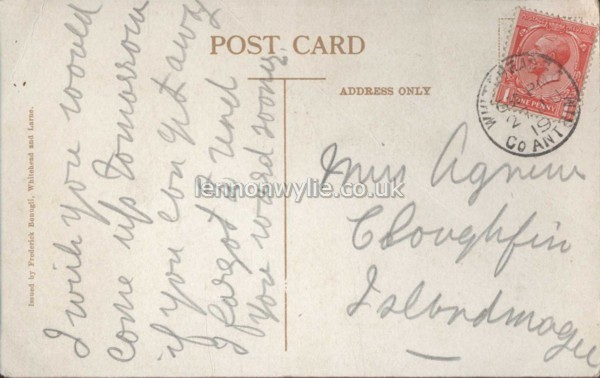 POST CARD
ADDRESS ONLY
Issued by Frederick Benagli, Whitehead and Larne.
I wish you would
come up tomorrow
if you can get away
I forgot to send
you word sooner
Miss Agnew
Cloughfin
Islandmagee
ONE PENNY
WHITEHEAD
Co ANTRIM
lennonwylie.co.uk